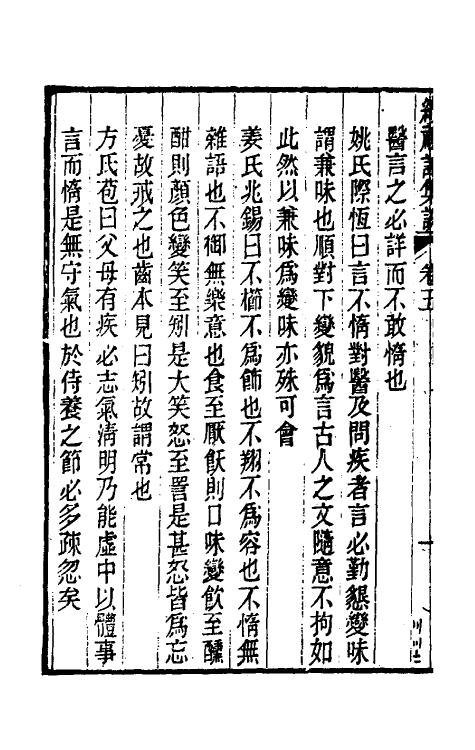 續禮記集說卷五
醫言之必詳而不敢惰也
姚氏際恆曰言不惰對醫及問疾者言必勤懇變味
謂兼味也順對下變貌為言古人之文隨意不拘如
此然以兼味為變味亦殊可會
姜氏兆錫曰不櫛不為飾也不翔不為容也不惰無
雜語也不御無樂意也食至厭飫則口味變飲至醺
酣則顏色變笑至矧是大笑怒至詈是甚怒皆為忘
憂故戒之也齒本見曰矧故謂常也
方氏苞曰父母有疾必志氣淸明乃能虛中以體事
言而惰是無守氣也於侍養之節必多疎忽矣